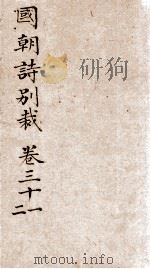 國朝詩別裁 卷三十一
二
研狗
mtoou.info